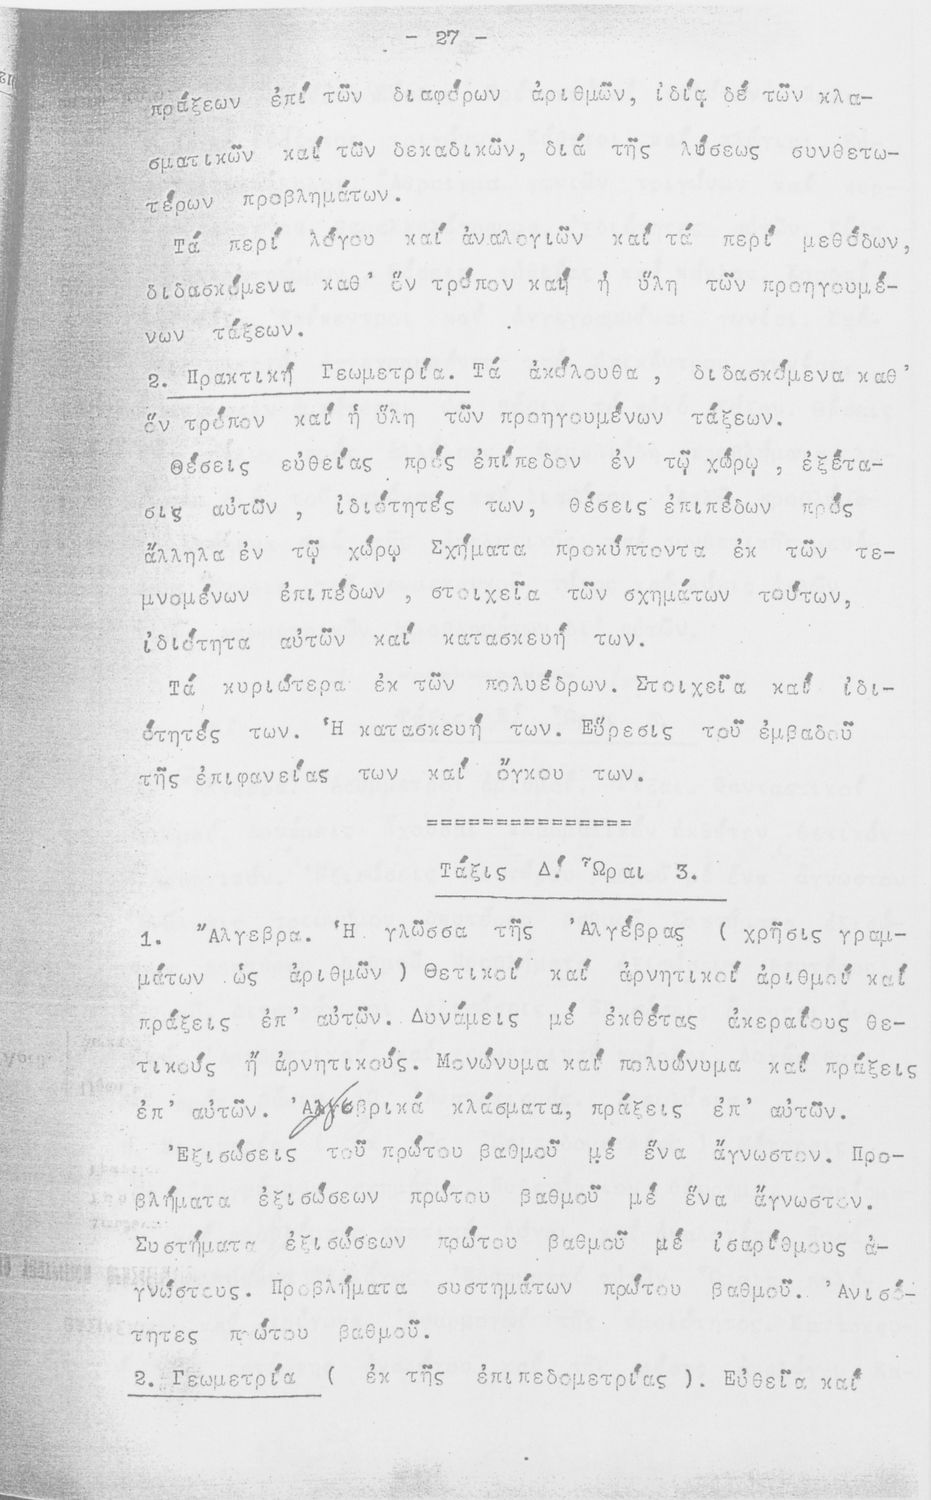 - 27 -
πράξεων ἐπί τῶν διαφόρων ἀριθμῶν, ἰδίᾳ δέ τῶν κλα-
σματικῶν καί τῶν δεκαδικῶν, διά τῆς λύσεως συνθετω-
τέρων προβλημάτων.
Τά περί λόγου καί ἀναλογιῶν καί τά περί μεθόδων,
διδασκόμενα καθ' ὅν τρόπον καί ἡ ὕλη τῶν προηγουμέ-
νων τάξεων.
2. Πρακτική Γεωμετρία. Τά ἀκόλουθα , διδασκόμενα καθ'
ὅν τρόπον καί ἡ ὕλη τῶν προηγουμένων τάξεων.
Θέσεις εὐθείας πρός ἐπίπεδον ἐν τῷ χώρῳ , ἐξέτα-
σις αὐτῶν , ἰδιότητές των, θέσεις ἐπιπέδων πρός
ἄλληλα ἐν τῷ χώρῳ Σχήματα προκύπτοντα ἐκ τῶν τε-
μνομένων ἐπιπέδων , στοιχεῖα τῶν σχημάτων τούτων,
ἰδιότητα αὐτῶν καί κατασκευή των.
Τά κυριώτερα ἐκ τῶν πολυέδρων. Στοιχεῖα καί ἰδι-
ότητές των. Ἡ κατασκευή των. Εὕρεσις τοῦ ἐμβαδοῦ
τῆς ἐπιφανείας των καί ὄγκου των.
===============
Τάξις Δ! Ὧραι 3.
1. Ἄλγεβρα. Ἡ γλῶσσα τῆς Ἀλγέβρας ( χρῆσις γραμ-
μάτων ὡς ἀριθμῶν ) Θετικοί καί ἀρνητικοί ἀριθμοί καί
πράξεις ἐπ' αὐτῶν. Δυνάμεις μέ ἐκθέτας ἀκεραίους θε-
τικούς ἤ ἀρνητικούς. Μονώνυμα καί πολυώνυμα καί πράξεις
ἐπ' αὐτῶν. Ἀλγεβρικά κλάσματα, πράξεις ἐπ' αὐτῶν.
Ἐξισώσεις τοῦ πρώτου βαθμοῦ μέ ἕνα ἄγνωστον. Προ-
βλήματα ἐξισώσεων πρώτου βαθμοῦ μέ ἕνα ἄγνωστον.
Συστήματα ἐξισώσεων πρώτου βαθμοῦ μέ ἰσαρίθμους ἀ-
γνώστους. Προβλήματα συστημάτων πρώτου βαθμοῦ. Ἀνισό-
τητες πρώτου βαθμοῦ.
2. Γεωμετρία ( ἐκ τῆς ἐπιπεδομετρίας ). Εὐθεῖα καί